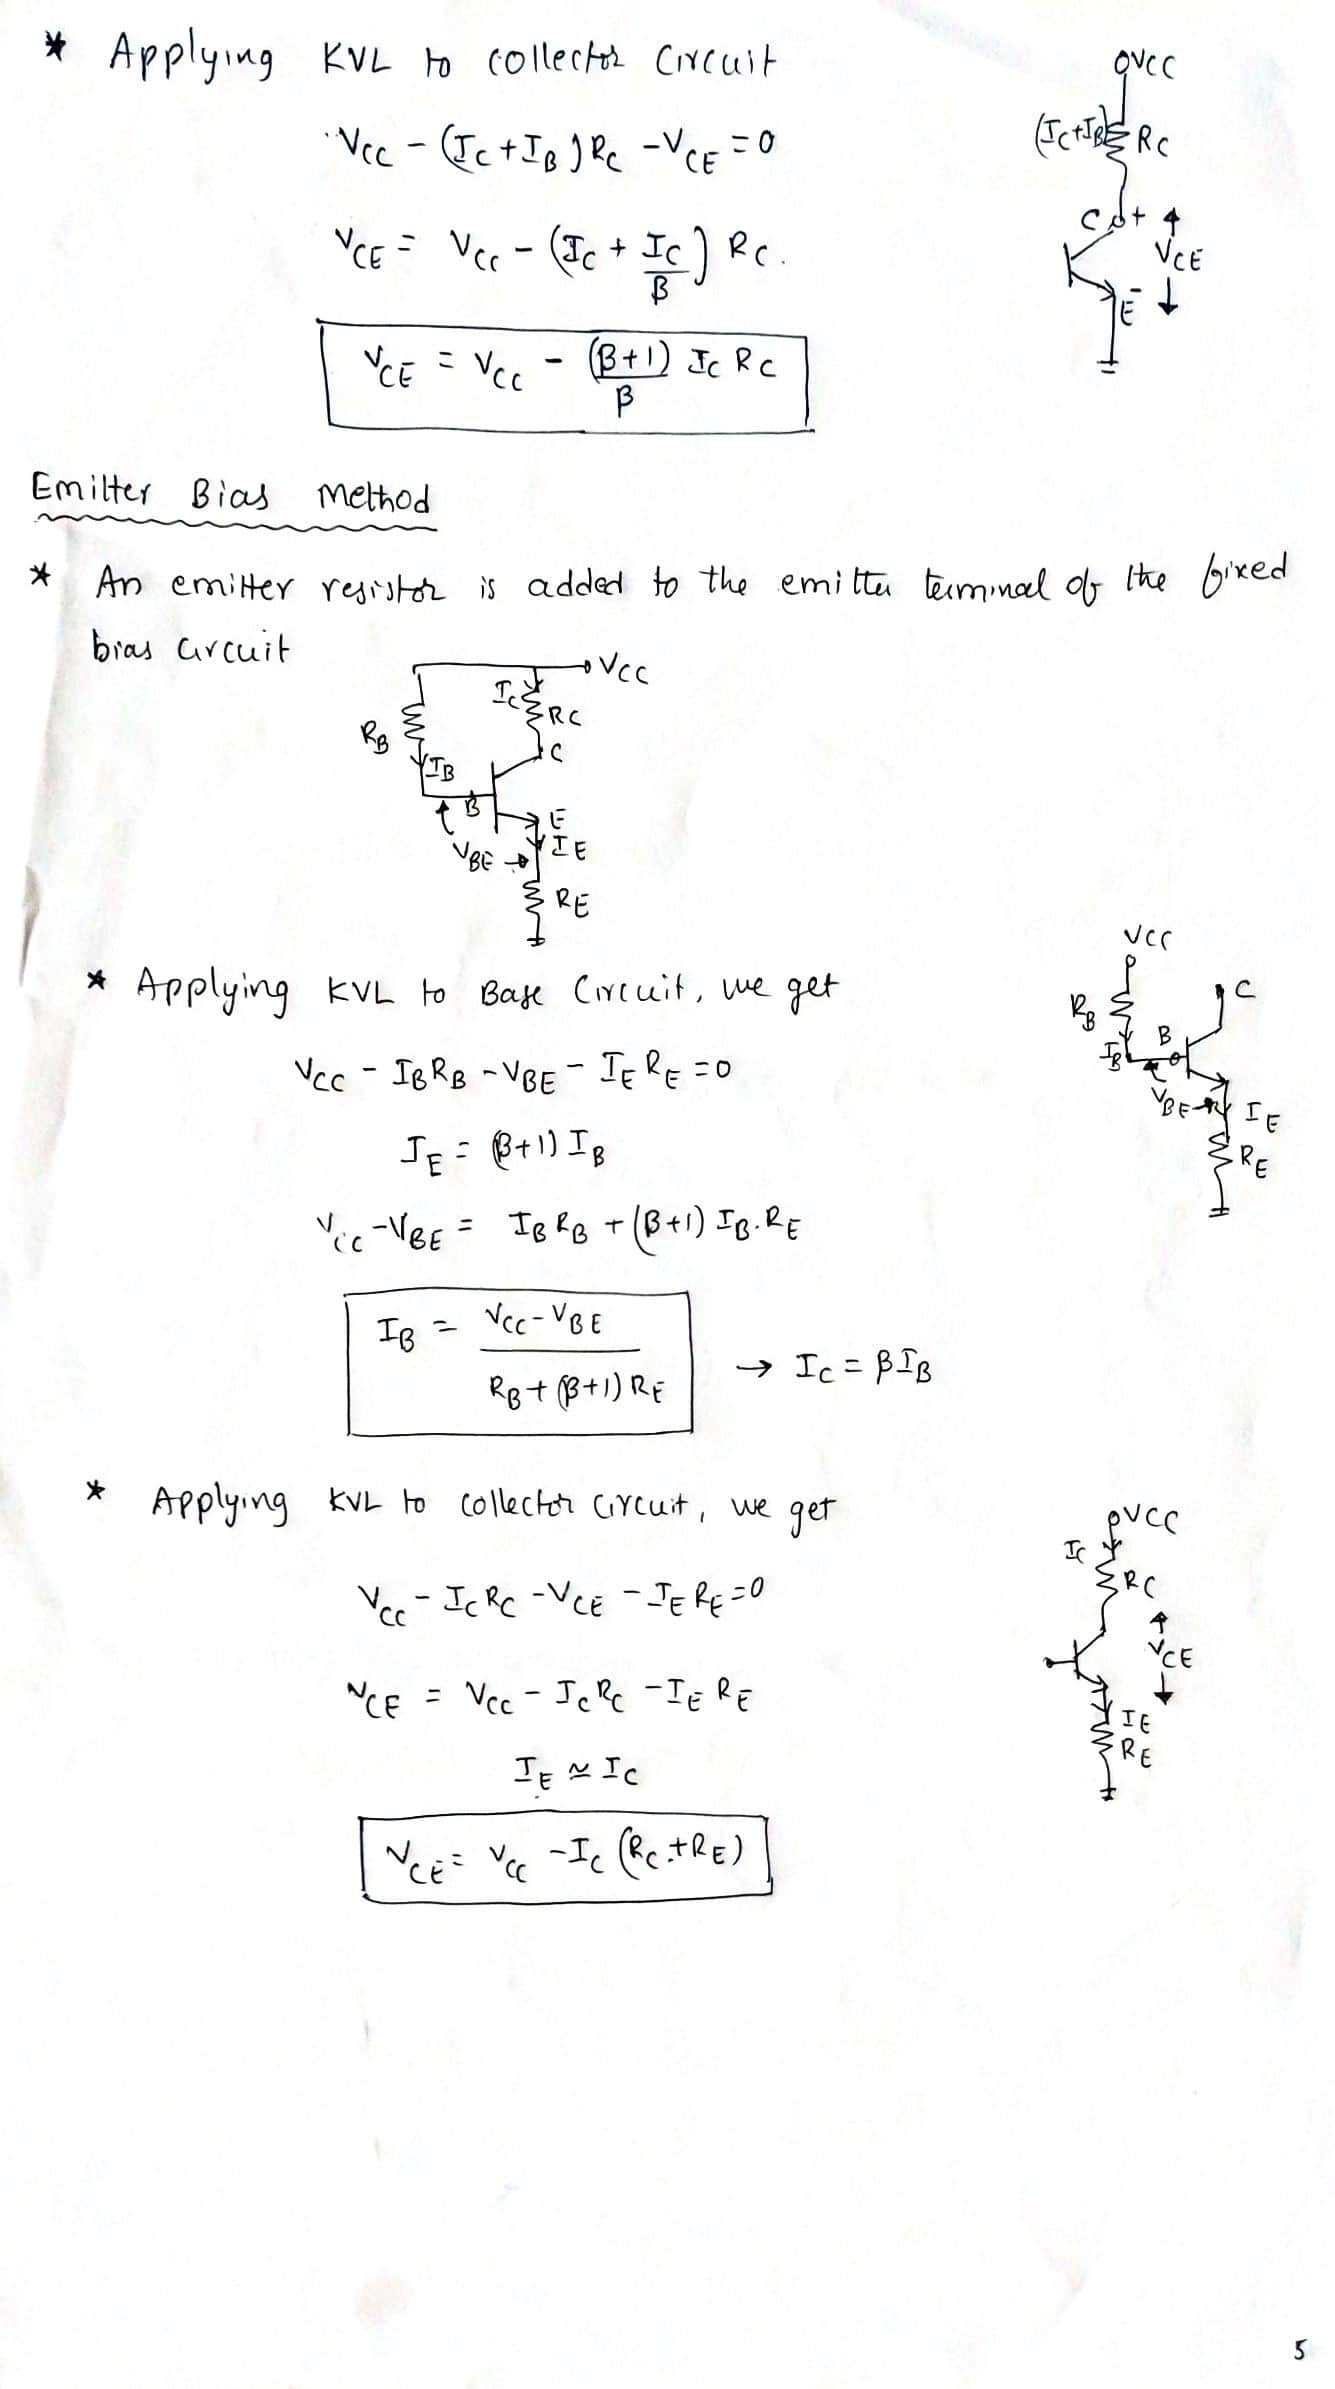 * Applying KVL to collector Circuit
VCC - (IC + IB) RC - VCE = 0
VCE = VCC - (IC + IC/β) RC.
VCE = VCC - (β+1)/β IC RC
VCC
(IC+IB) RC
C + VCE
E -
Emitter Bias Method
* An emitter resistor is added to the emitter terminal of the fixed
bias circuit
VCC
IC RC
RB
C
IB
B
E
VBE IE
RE
* Applying KVL to Base Circuit, we get
VCC - IB RB - VBE - IE RE = 0
IE = (β+1) IB
VCC - VBE = IB RB + (β+1) IB . RE
IB = VCC - VBE / RB + (β+1) RE → IC = βIB
VCC
RB C
IB B
VBE IE
RE
* Applying KVL to collector circuit, we get
VCC - IC RC - VCE - IE RE = 0
VCE = VCC - IC RC - IE RE
IE ≃ IC
VCE = VCC - IC (RC + RE)
VCC
IC
RC
VCE
IE
RE
5